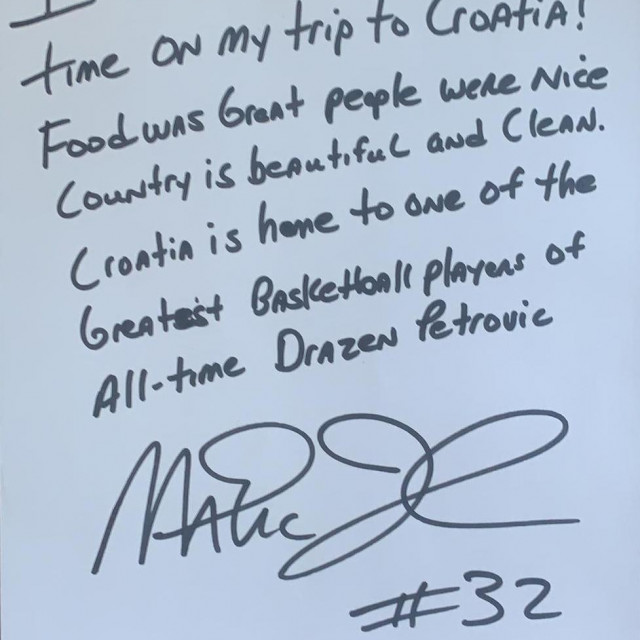 I
time on my trip to Croatia!
Food was Great people were Nice
Country is beautiful and Clean.
Croatia is home to one of the
Greatest Basketball players of
All-time Drazen Petrovic
Magic J
#32